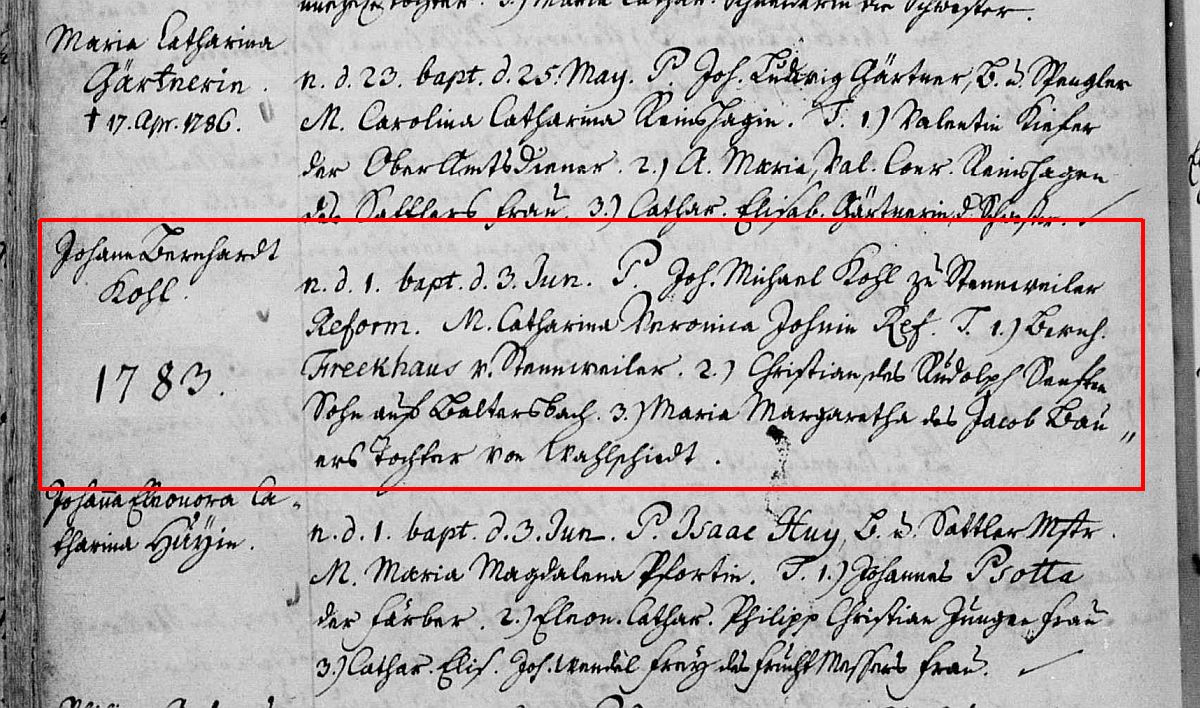 Tochter. 3.) Maria Cathar. Schneiderin die Schwester.
Maria Catharina
Gärtnerin.
† 17. Apr. 1786.
n. d. 23. bapt. d. 25. May. P. Joh. Ludwig Gärtner, B. u. Spengler
M. Carolina Catharina Remshagin. T. 1.) Valentin Kiefer
der OberAmtsdiener. 2.) A. Maria, Val. Conr. Remshagen
des Sattlers Frau. 3.) Cathar. Elisab. Gärtnerin, d. Schwester.
Johann Bernhardt
Kohl.
1783.
n. d. 1. bapt. d. 3. Jun. P. Joh. Michael Kohl zu Stennweiler
Reform. M. Catharina Veronica Johnin Ref. T. 1.) Bernh.
Freekhaus v. Stennweiler. 2.) Christian, des Rudolph Senften
Sohn auß Baltersbach. 3.) Maria Margaretha des Jacob Bau„
ers Tochter von Wahlschiedt.
Johanna Eleonora Ca-
tharina Huyin.
n. d. 1. bapt. d. 3. Jun. P. Isaac Huy, B. u. Sattler Mstr.
M. Maria Magdalena Pfortin. T. 1.) Johannes Psotta
der Färber. 2.) Eleon. Cathar. Philipp Christian Jungen Frau
3.) Cathar. Elis. Joh. Wendel Frey des Frucht Messers Frau.